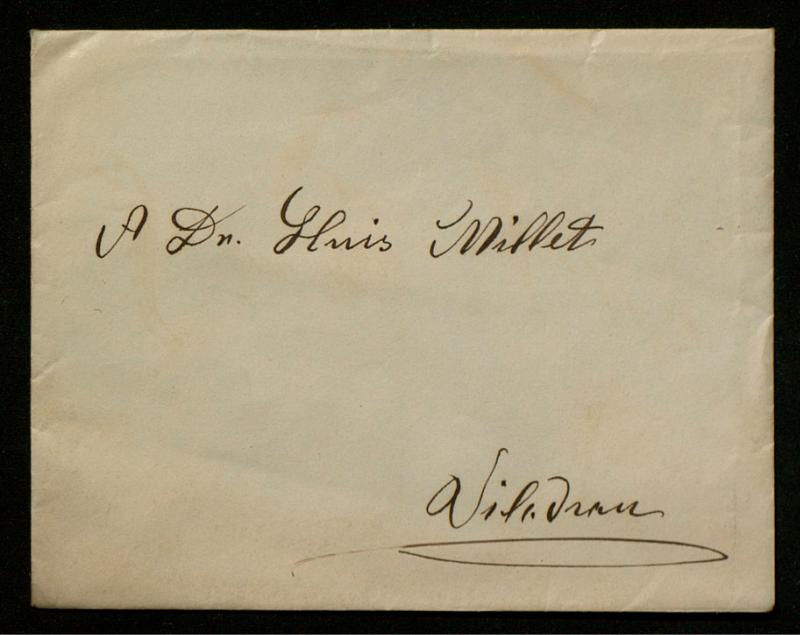 A Dn. Lluis Millet
Viladrau